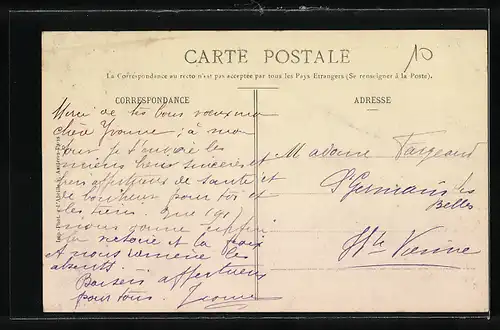 CARTE POSTALE
10
La Correspondance au recto n'est pas acceptée par tous les Pays Etrangers (Se renseigner à la Poste).
CORRESPONDANCE
ADRESSE
Merci de tes bons vœux ma
chère Yvonne ; à mon
tour je t'envoie les
miens bien sincères et
affectueux de santé et
de bonheur pour toi et
les tiens. Que 191
nous donne enfin
la victoire et la paix
et nous ramène les
absents.
Baisers affectueux
pour tous. Yvonne
Madame Fargeaud
St Germain les
Belles
Hte Vienne